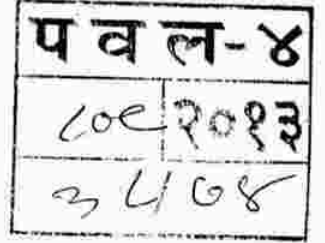 प व ल-४
८०९ २०१३
३ ८/ ०४